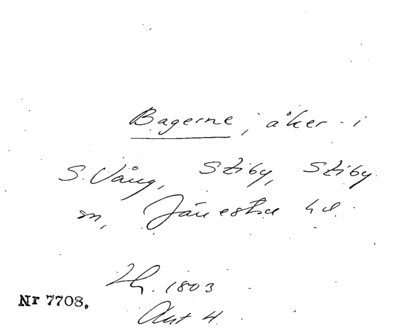 Bagerne, åker i
S. Vång, Stiby, Stiby
sn, Järrestad hd.
1803
Akt 4.
Nr 7708.